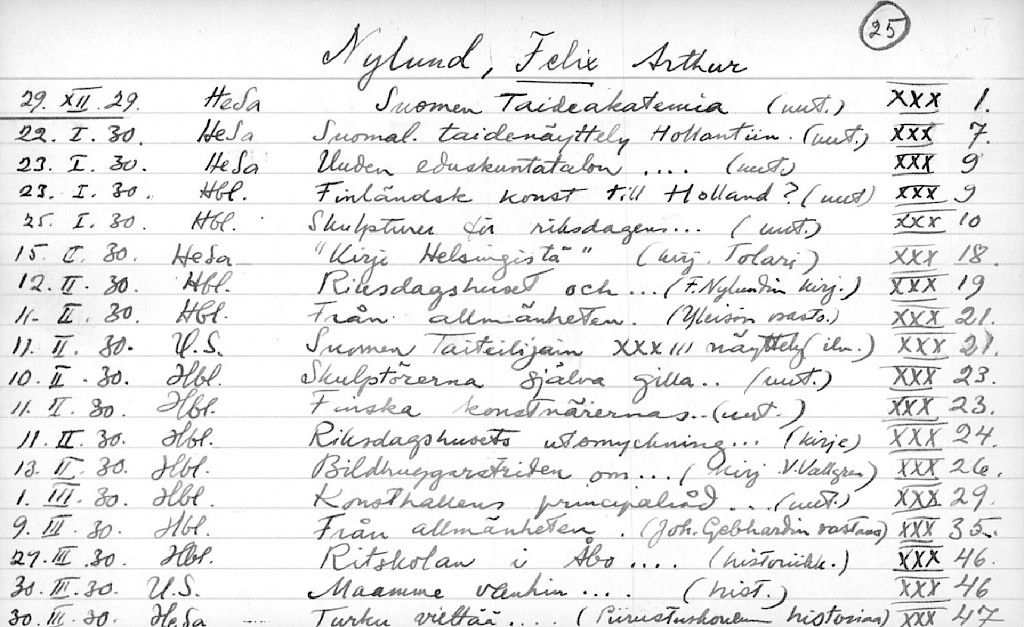 25
Nylund, Felix Arthur
29. XII. 29. HeSa Suomen Taideakatemia (uut.) XXX 1.
22. I. 30. HeSa Suomal. taidenäyttely Hollantiin. (uut.) XXX 7.
23. I. 30. HeSa Uuden eduskuntatalon .... (uut.) XXX 9
23. I. 30. Hbl. Finländsk konst till Holland? (uut) XXX 9
25. I. 30. Hbl. Skulpturer för riksdagens... (uut.) XXX 10
15. I. 30. HeSa "Kirje Helsingistä" (kirj. Tolari) XXX 18.
12. II. 30. Hbl. Riksdagshuset och ... (F. Nylundin kirj.) XXX 19
11. II. 30. Hbl. Från allmänheten. (Yleisön osasto.) XXX 21.
11. II. 30. U.S. Suomen Taiteilijain XXXIII näyttely (ilm.) XXX 21.
10. II. 30. Hbl. Skulptörerna själva gilla.. (uut.) XXX 23.
11. II. 30. Hbl. Finska konstnärernas.. (uut.) XXX 23.
11. II. 30. Hbl. Riksdagshusets utsmyckning... (kirje) XXX 24.
13. II. 30. Hbl. Bildhuggarstriden om... (kirj V. Vallgren) XXX 26.
1. III. 30. Hbl Konsthallens principalråd ... (uut.) XXX 29.
9. III. 30. Hbl. Från allmänheten. (Joh. Gebhardin vastaus) XXX 35.
27. III. 30. Hbl. Ritskolan i Åbo .... (historiikk.) XXX 46.
30. III. 30. U.S. Maamme vanhin .... (hist.) XXX 46
30. III. 30. HeSa Turku viettää .... (Piirustuskoulun historiaa) XXX 47